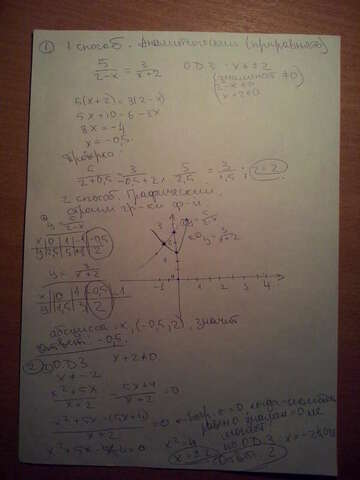 ① 1 способ. Аналитический (приравнять)
5/(2-x) = 3/(x+2)
ОДЗ: x≠±2
(знаменат ≠0)
2-x≠0
x+2≠0
5(x+2)=3(2-x)
5x+10=6-3x
8x=-4
x=-0,5
Проверка:
5/(2+0,5) = 3/(-0,5+2), 5/2,5 = 3/1,5; 2=2
2 способ. Графический
строим гр-ки ф-й
y=5/(2-x)
x | 0 | 1 | -1 | -0,5
y=3/(x+2)
x | 0 | 1 | -0,5 | -1
y | 1,5 | 1 | 2 | 3
абсцисса = x, (-0,5; 2), значит
Ответ: -0,5.
② ОДЗ x+2≠0
x≠-2
(x²+5x)/(x+2) - (5x+4)/(x+2) = 0
(x²+5x-(5x+4))/(x+2) = 0
x²+5x-5x-4=0
x²=4
x=±2
по ОДЗ x≠-2
Ответ: 2